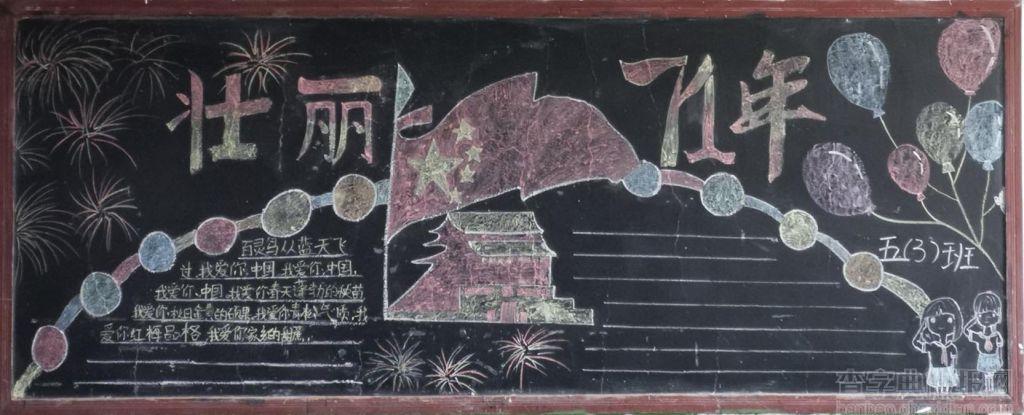 壮丽71年
百灵鸟从蓝天飞
过,我爱你,中国,我爱你,中国,
我爱你,中国,我爱你春天蓬勃的秧苗
我爱你秋日金黄的硕果,我爱你青松气质,我
爱你红梅品格,我爱你家乡的甜蔗,
五(3)班